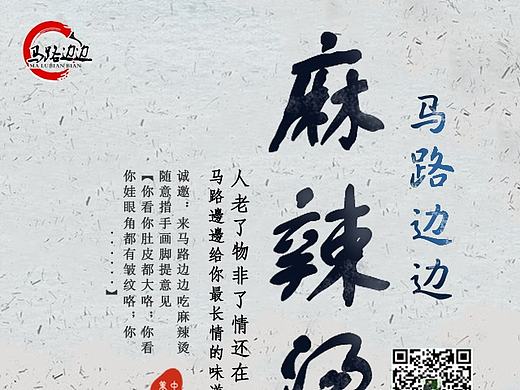 马路边边
MA LU BIAN BIAN
马路边边
麻辣烫
人老了物非了情还在
马路邊邊给你最长情的味道
诚邀：来马路边边吃麻辣烫
随意指手画脚提意见
【你看你肚皮都大咯；你看
你娃眼角都有皱纹咯；你
······】